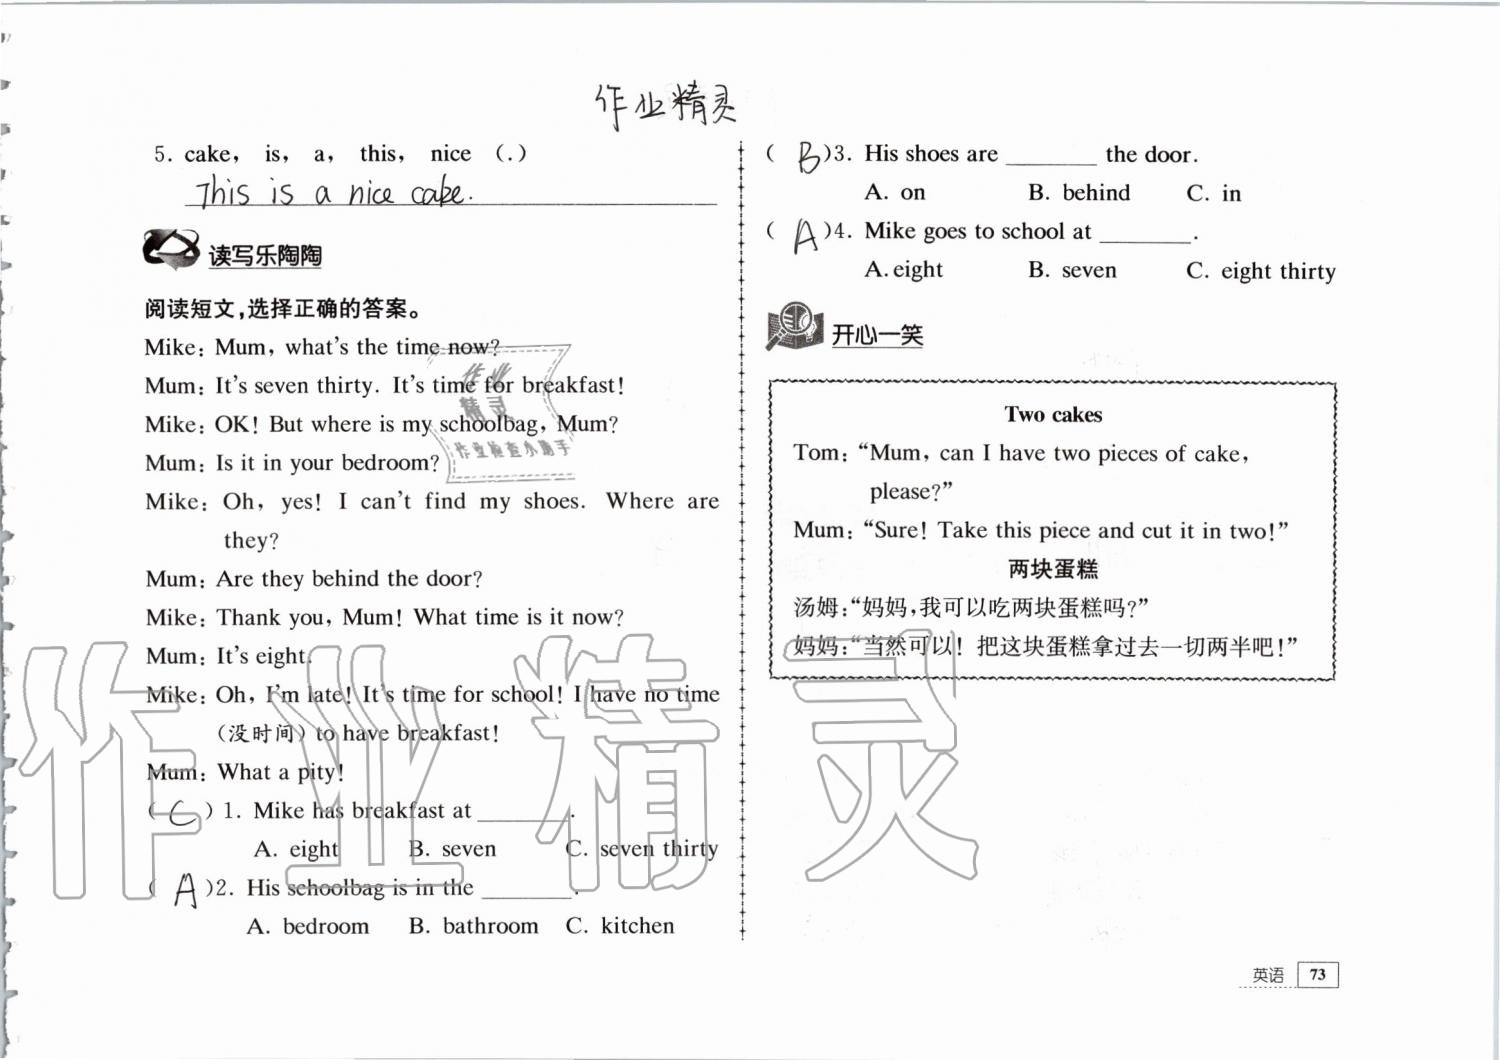 作业精灵
5. cake, is, a, this, nice (.)
This is a nice cake.
读写乐陶陶
阅读短文,选择正确的答案。
Mike: Mum, what's the time now?
Mum: It's seven thirty. It's time for breakfast!
Mike: OK! But where is my schoolbag, Mum?
Mum: Is it in your bedroom?
Mike: Oh, yes! I can't find my shoes. Where are
they?
Mum: Are they behind the door?
Mike: Thank you, Mum! What time is it now?
Mum: It's eight.
Mike: Oh, I'm late! It's time for school! I have no time
(没时间) to have breakfast!
Mum: What a pity!
( C ) 1. Mike has breakfast at ________.
A. eight B. seven C. seven thirty
( A )2. His schoolbag is in the ________.
A. bedroom B. bathroom C. kitchen
( B )3. His shoes are ________ the door.
A. on B. behind C. in
( A )4. Mike goes to school at ________.
A. eight B. seven C. eight thirty
开心一笑
Two cakes
Tom: “Mum, can I have two pieces of cake,
please?”
Mum: “Sure! Take this piece and cut it in two!”
两块蛋糕
汤姆:“妈妈,我可以吃两块蛋糕吗?”
妈妈:“当然可以! 把这块蛋糕拿过去一切两半吧!”
英语 73
作业
精灵
作业检查小助手
作业精灵